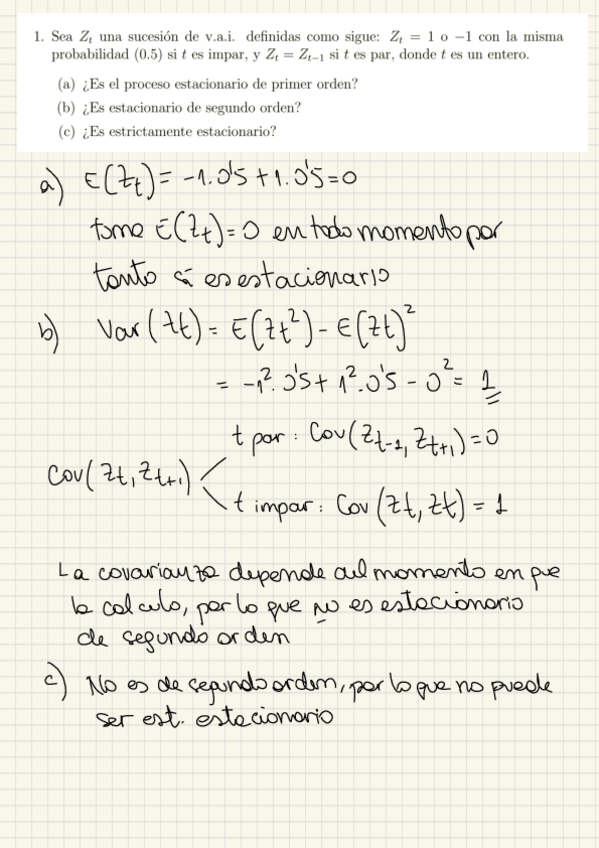 1. Sea Z_t una sucesión de v.a.i. definidas como sigue: Z_t = 1 o −1 con la misma
probabilidad (0.5) si t es impar, y Z_t = Z_{t−1} si t es par, donde t es un entero.
(a) ¿Es el proceso estacionario de primer orden?
(b) ¿Es estacionario de segundo orden?
(c) ¿Es estrictamente estacionario?
a) E(Z_t) = -1·0'5 + 1·0'5 = 0
E(Z_t) = 0 en todo momento por
tanto sí es estacionario
b) Var(Zt) = E(Zt²) - E(Zt)²
= -1²·0'5 + 1²·0'5 - 0² = 1
t par: Cov(Z_{t-1}, Z_{t+1}) = 0
Cov(Zt, Z_{t+1})
t impar: Cov(Zt, Zt) = 1
La covarianza depende del momento en que
la calculo, por lo que no es estacionario
de segundo orden
c) No es de segundo orden, por lo que no puede
ser est. estacionario